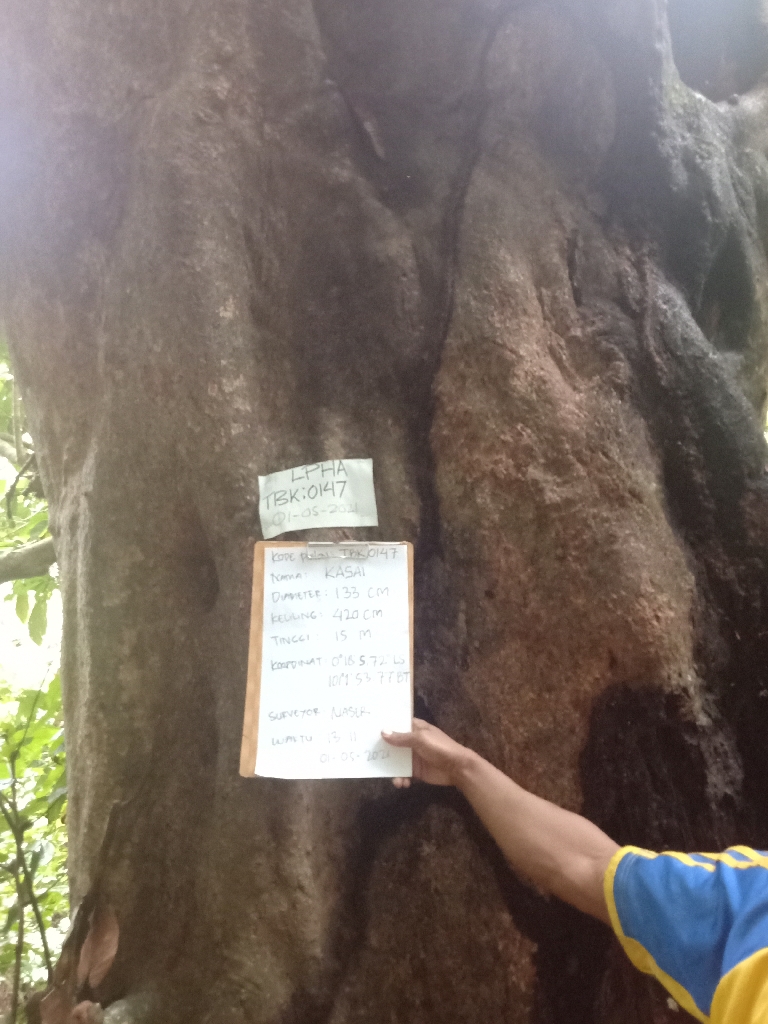 LPHA
TBK:0147
01-05-2021
KODE POHON: TBK0147
NAMA: KASAI
DIAMETER: 133 CM
KELILING: 420 CM
TINGGI: 15 M
KOORDINAT: 0°18'5.72" LS
SURVEYOR NASIR
WAKTU 13.11
01-05-2021